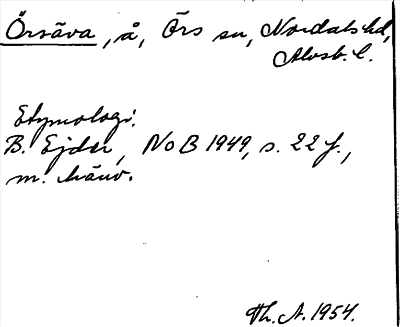 Örsäva, å, Örs sn, Nordals hd,
Älvsb. l.
Etymologi:
B. Ejder, NoB 1949, s. 22 f.,
m. hänv.
Th. A. 1954.